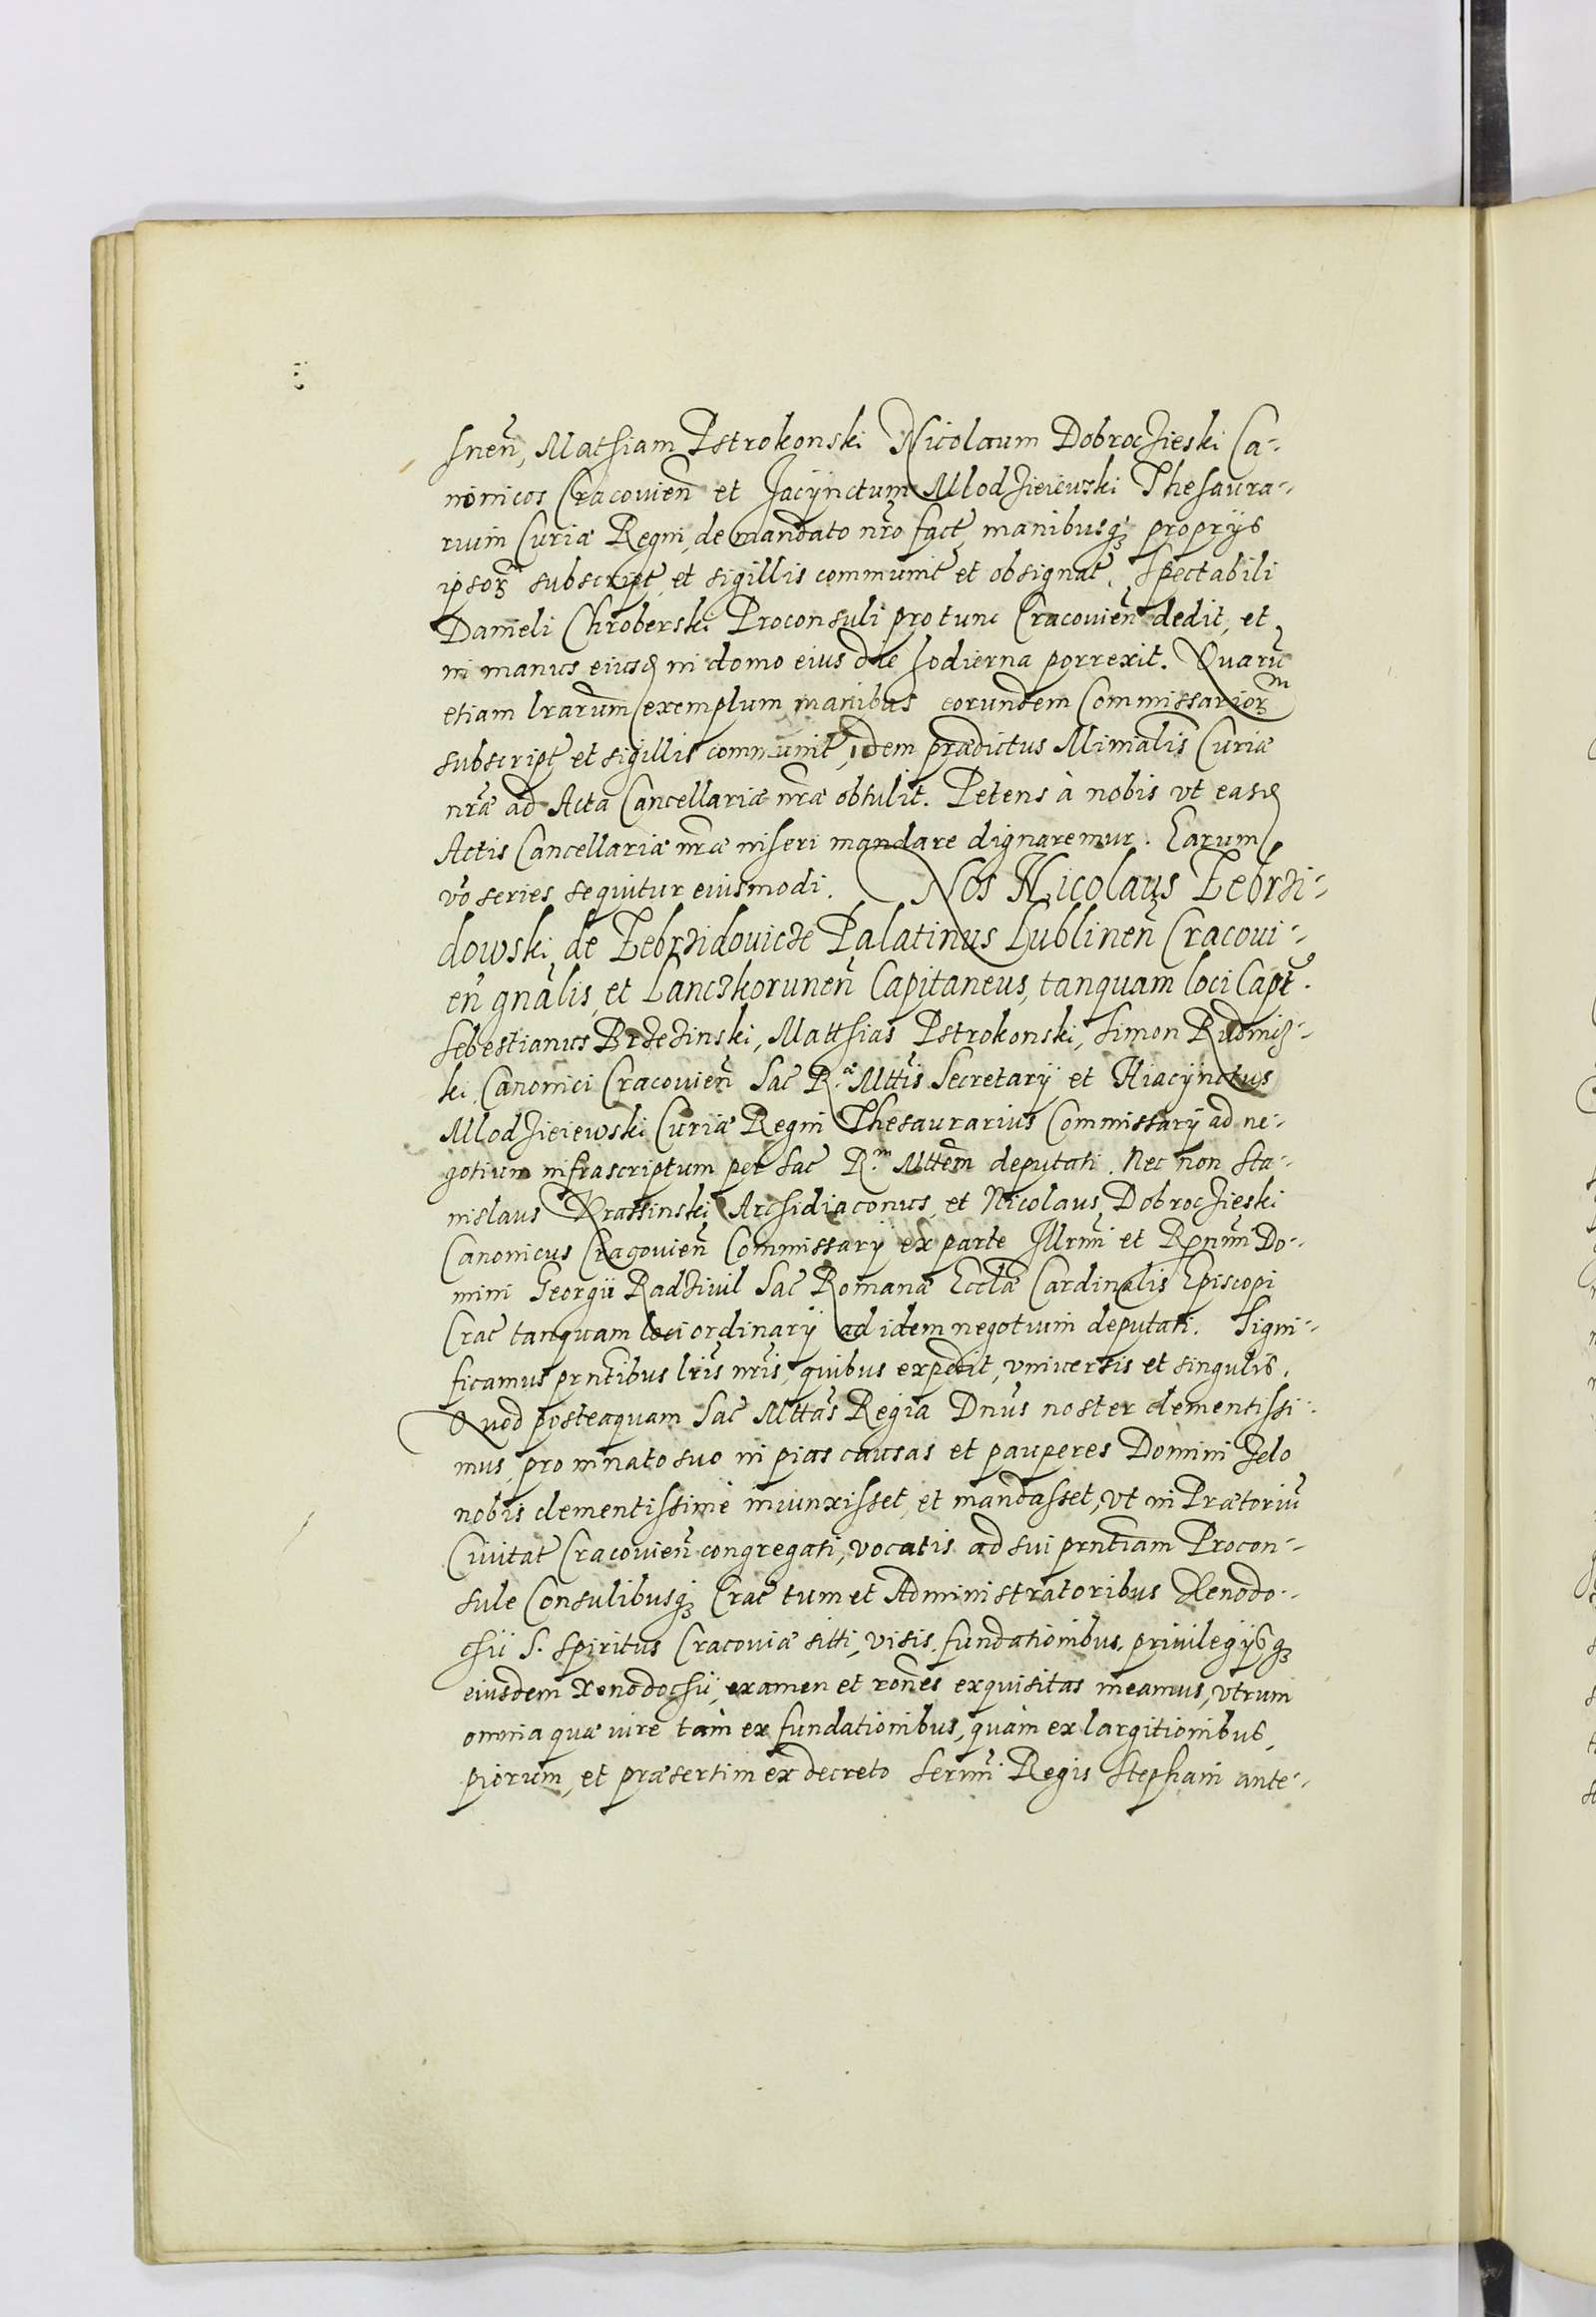 snen̄, Mathiam Pstrokonski Nicolaum Dobroczieski Ca-
nonicos Cracovien̄ et Jacynctum Mlodzieiewski Thesaura-
rium Curiæ Regni, de mandato nr̄o fact, manibusq3 proprijs
ipsor̄ subscript, et sigillis communit et obsignat. Spectabili
Danieli Chroberski Proconsuli pro tunc Cracovien̄ dedit, et
in manus eiusd in domo eius die hodierna porrexit. Quarū
etiam lrarum exemplum manibus eorundem Commissarior̄m
subscript et sigillis communit, idem prædictus Minialis Curiæ
nr̄æ ad Acta Cancellariæ nr̄æ obtulit. Petens à nobis vt easd
Actis Cancellariæ nr̄æ inseri mandare dignaremur. Earum
vō series sequitur eiusmodi. Nos Nicolaus Zebrzi-
dowski de Zebrzidovicze Palatinus Lublinen̄ Cracovi-
en̄ gnālis, et Lanczkorunen̄ Capitaneus, tanquam loci Capt.
Sebestianus Brzezinski, Matthias Pstrokonski, Simon Rudnicz-
ki, Canonici Cracovien̄ Sac̄ R.æ Mttis Secretarij et Hiacynctus
Mlodzieiewski Curiæ Regni Thesaurarius Commissarij ad ne-
gotium infrascriptum per Sac̄ R.m Mttem deputati. Nec non Sta-
nislaus Krassinski Archidiaconus, et Nicolaus Dobroczieski
Canonicus Cracovien̄ Commissarij ex parte Illrmi et Rn̄mi Do-
mini Georgii Radzivil Sac̄ Romanæ Ecclæ Cardinalis Episcopi
Crac̄ tanquam loci ordinarij ad idem negotium deputati. Signi-
ficamus prn̄tibus lr̄is nr̄is, quibus expedit, vniversis et singulis.
Quod posteaquam Sac̄ Mttas Regia Dn̄us noster clementissi-
mus, pro innato suo in pias causas et pauperes Domini zelo
nobis clementissimè iniunxisset, et mandasset, vt in Prætoriū
Civitat Cracovien̄ congregati, vocatis ad sui prn̄tiam Procon-
sule Consulibusq3 Crac̄ tum et Administratoribus Xenodo-
chii S. Spiritus Cracoviæ siti, visis fundationibus, privilegijsq3
eiusdem Xenodochii, examen et rōnes exquisitas ineamus, vtrum
omnia quæ iure tam ex fundationibus, quàm ex largitionibus
piorum, et præsertim ex decreto Sermi Regis Stephani ante-